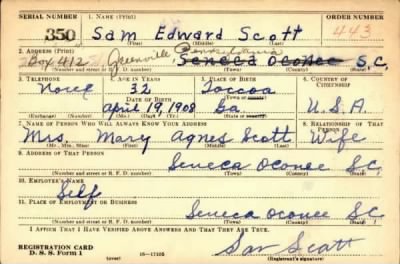 SERIAL NUMBER 1. NAME (Print) ORDER NUMBER
350 Sam Edward Scott 443
(First) (Middle) (Last)
2. ADDRESS (Print)
Box 412 Greenville Pennsylvania Seneca Oconee S.C.
(Number and street or R. F. D. number) (Town) (County) (State)
3. TELEPHONE 4. AGE IN YEARS 5. PLACE OF BIRTH 6. COUNTRY OF CITIZENSHIP
None 32 Toccoa
DATE OF BIRTH (Town or county)
April 19, 1908 Ga. U.S.A.
(Exchange) (Number) (Mo.) (Day) (Yr.) (State or country)
7. NAME OF PERSON WHO WILL ALWAYS KNOW YOUR ADDRESS 8. RELATIONSHIP OF THAT PERSON
Mrs. Mary Agnes Scott Wife
(Mr., Mrs., Miss) (First) (Middle) (Last)
9. ADDRESS OF THAT PERSON
Seneca Oconee S.C.
(Number and street or R. F. D. number) (Town) (County) (State)
10. EMPLOYER'S NAME
Self
11. PLACE OF EMPLOYMENT OR BUSINESS
Seneca Oconee S.C.
(Number and street or R. F. D. number) (Town) (County) (State)
I AFFIRM THAT I HAVE VERIFIED ABOVE ANSWERS AND THAT THEY ARE TRUE.
REGISTRATION CARD
D. S. S. Form 1 16—17105 Sam Scott
(over) (Registrant's signature)